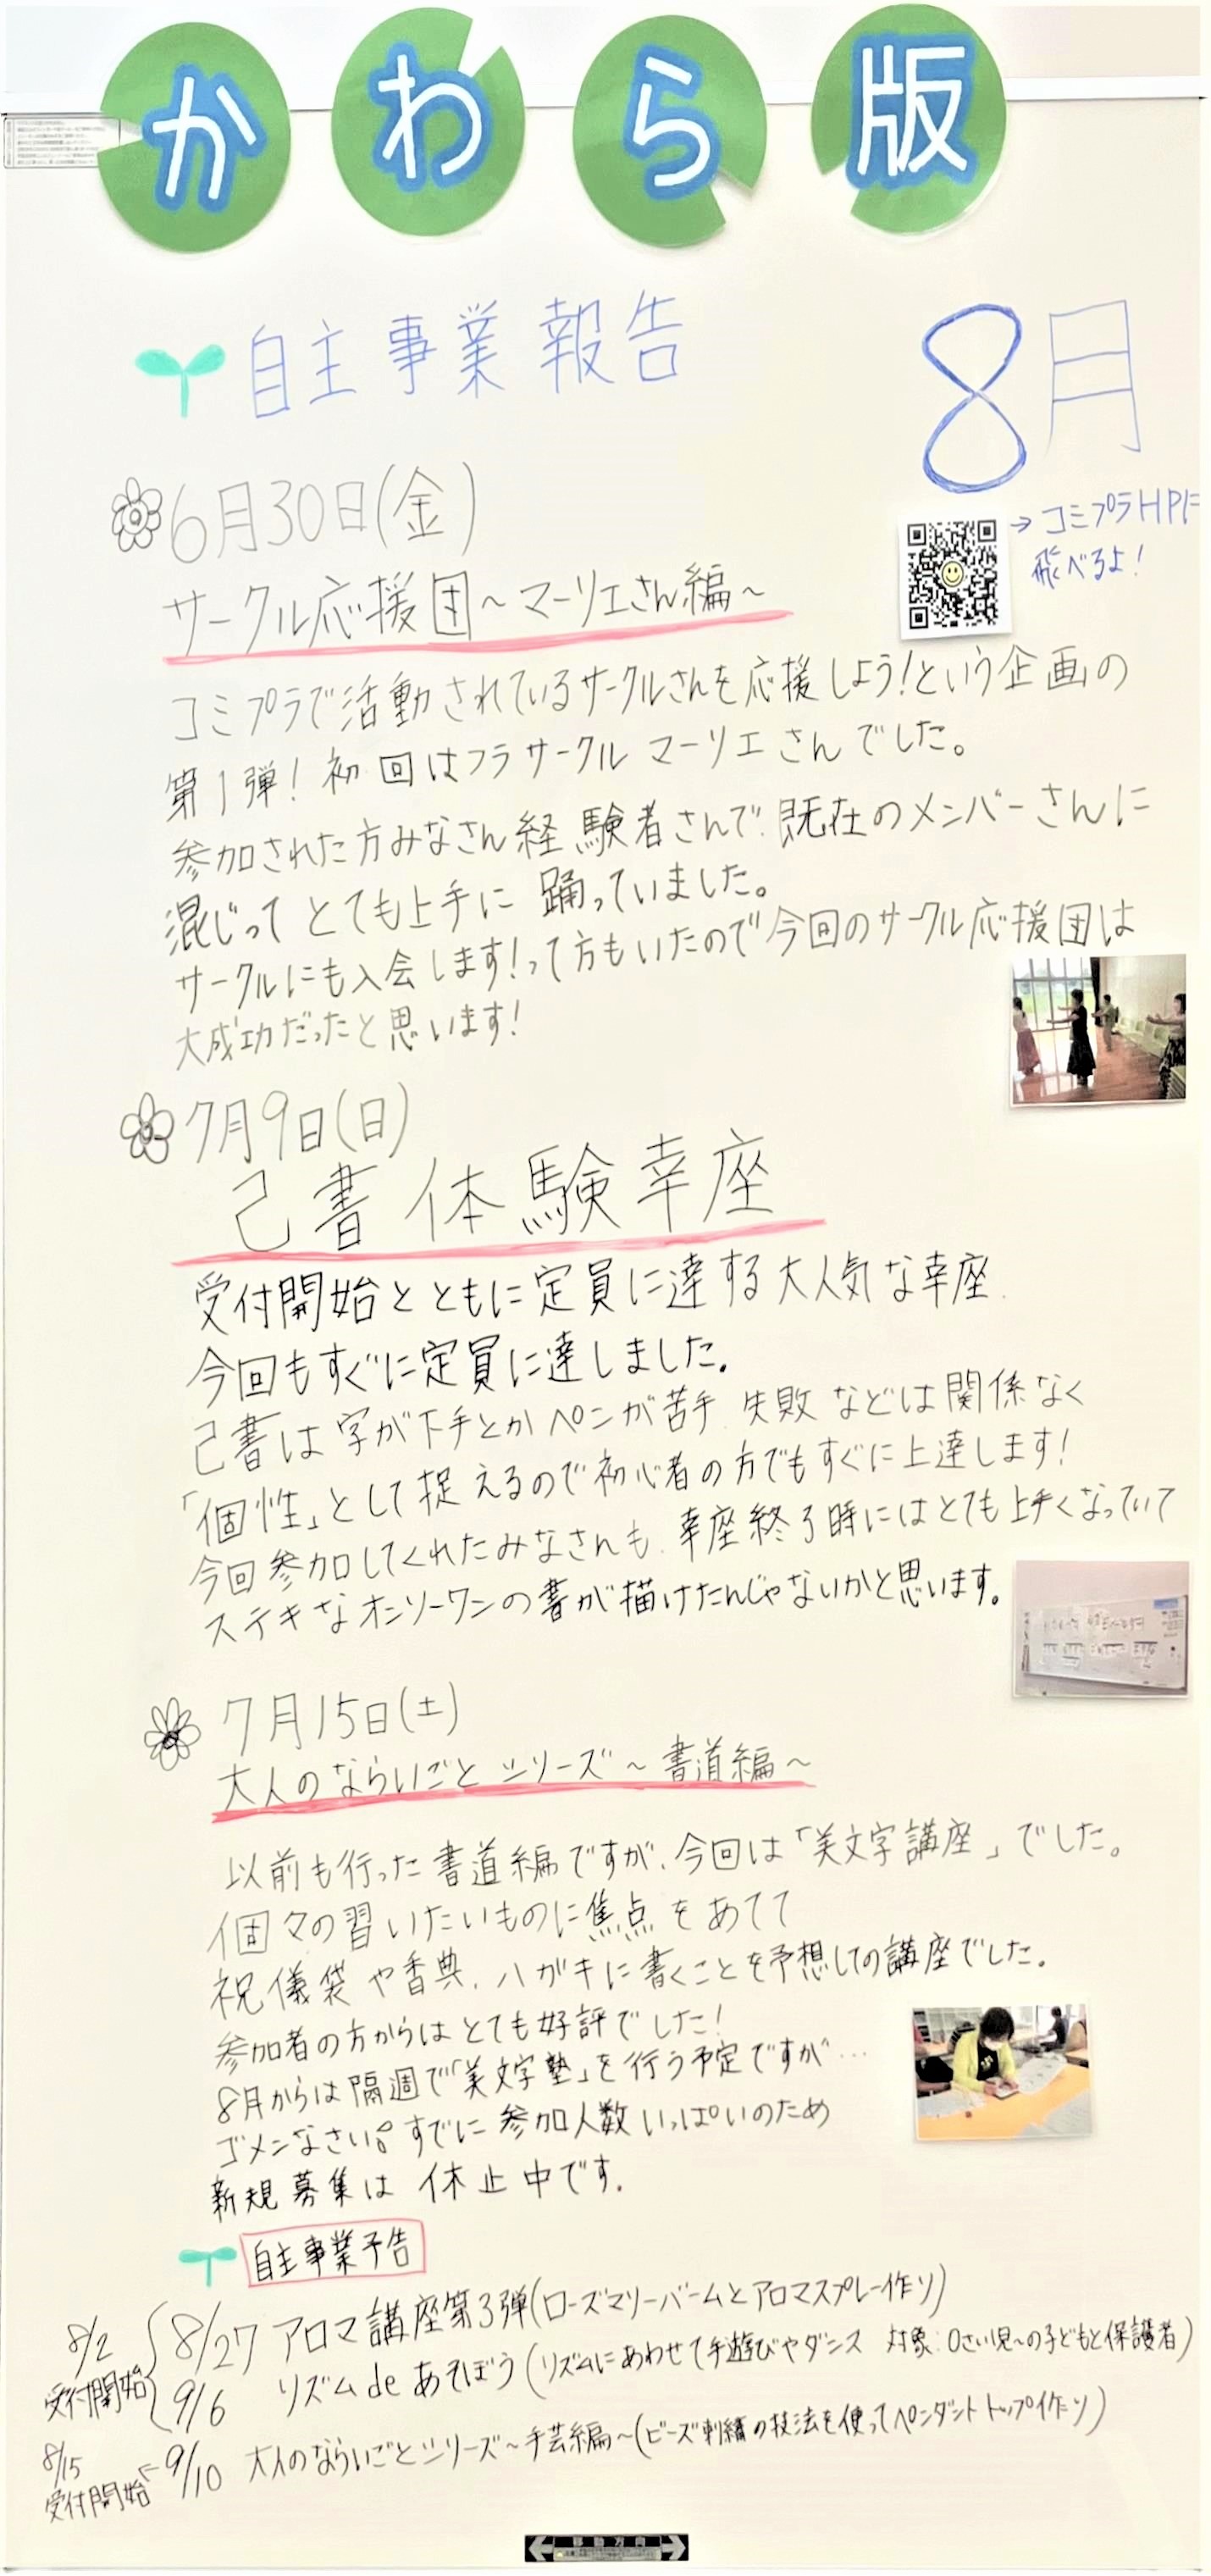 かわら版
自主事業報告
8月
→コミプラHPに
飛べるよ！
6月30日(金)
サークル応援団～マーリエさん編～
コミプラで活動されているサークルさんを応援しよう！という企画の
第1弾！初回はフラサークル マーリエさんでした。
参加された方みなさん経験者さんで、既在のメンバーさんに
混じってとても上手に踊っていました。
サークルにも入会します！って方もいたので今回のサークル応援団は
大成功だったと思います！
7月9日(日)
己書体験幸座
受付開始とともに定員に達する大人気な幸座
今回もすぐに定員に達しました。
己書は字が下手とかペンが苦手、失敗などは関係なく
「個性」として捉えるので初心者の方でもすぐに上達します！
今回参加してくれたみなさんも、幸座終了時にはとても上手くなっていて
ステキなオンリーワンの書が描けたんじゃないかと思います。
7月15日(土)
大人のならいごとシリーズ～書道編～
以前も行った書道編ですが、今回は「美文字講座」でした。
個々の習いたいものに焦点をあてて
祝儀袋や香典、ハガキに書くことを予想しての講座でした。
参加者の方からはとても好評でした！
8月からは隔週で「美文字塾」を行う予定ですが…
ゴメンなさい。すでに参加人数いっぱいのため
新規募集は休止中です。
自主事業予告
8/2
受付開始
8/27 アロマ講座第3弾(ローズマリーバームとアロマスプレー作り)
9/6 リズムdeあそぼう(リズムにあわせて手遊びやダンス 対象:0さい児～の子どもと保護者)
8/15
受付開始
←9/10 大人のならいごとシリーズ～手芸編～(ビーズ刺繍の技法を使ってペンダントトップ作り)
移動方向